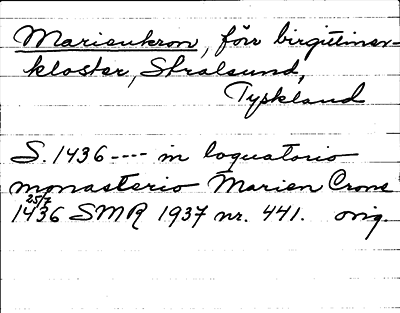 Marienkron, förr birgittiner-
kloster, Stralsund,
Tyskland
S. 1436 ---- in loquatorio
monasterio Marien Crone
1436 25/7 SMR 1937 nr. 441. orig.